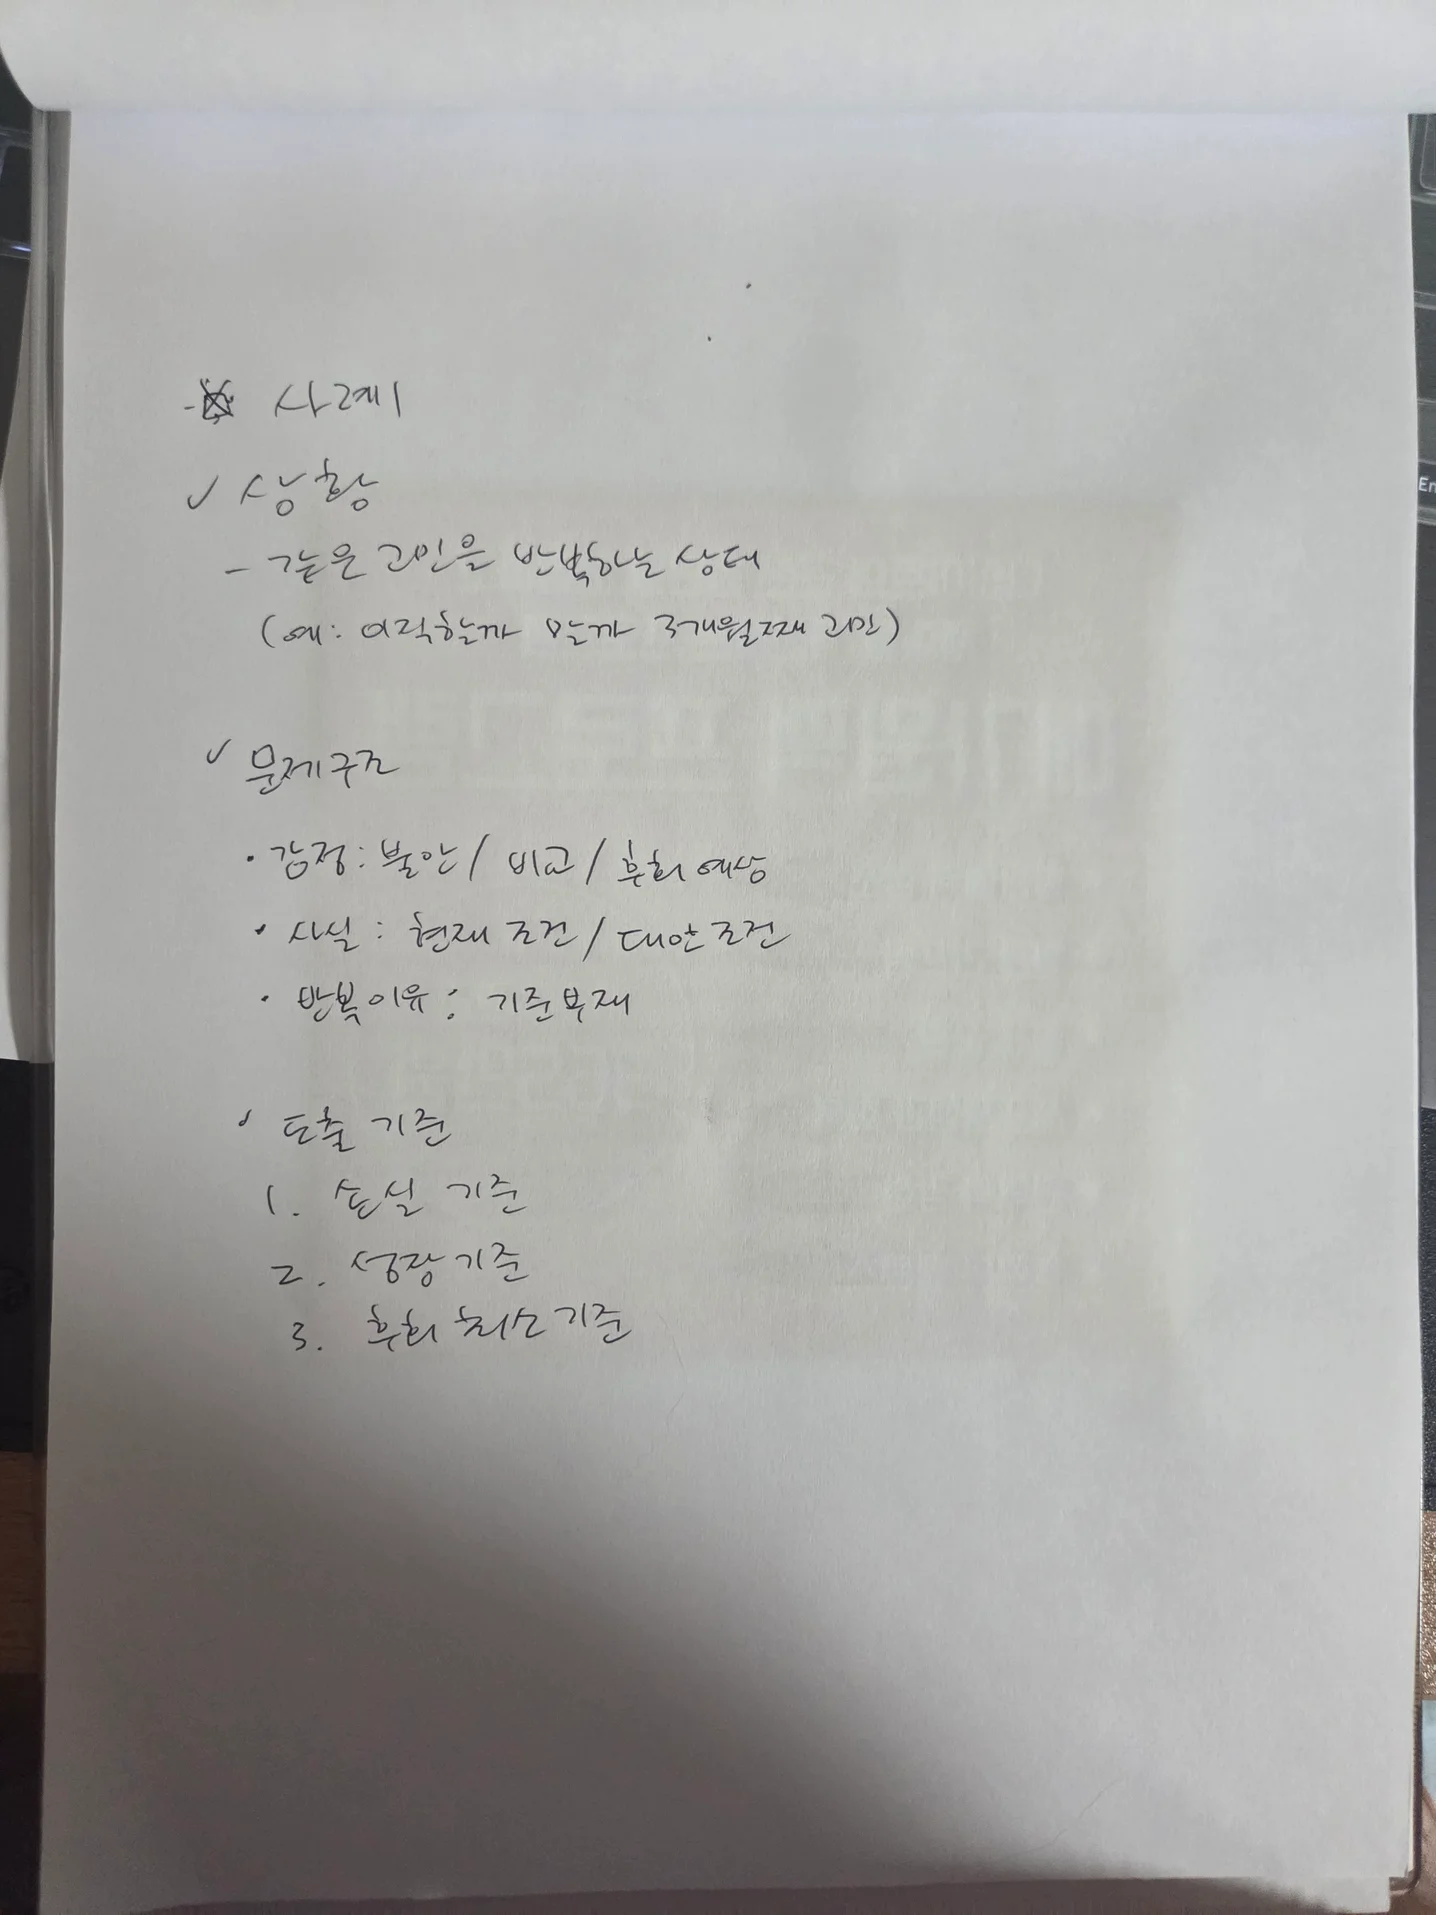 ※ 사례1
✓ 상황
- 같은 고민을 반복하는 상태
(예: 이직할까 말까 3개월째 고민)
✓ 문제구조
· 감정: 불안 / 비교 / 후회 예상
· 사실: 현재 조건 / 대안 조건
· 반복이유: 기준부재
✓ 도출 기준
1. 손실 기준
2. 성장 기준
3. 후회 최소 기준